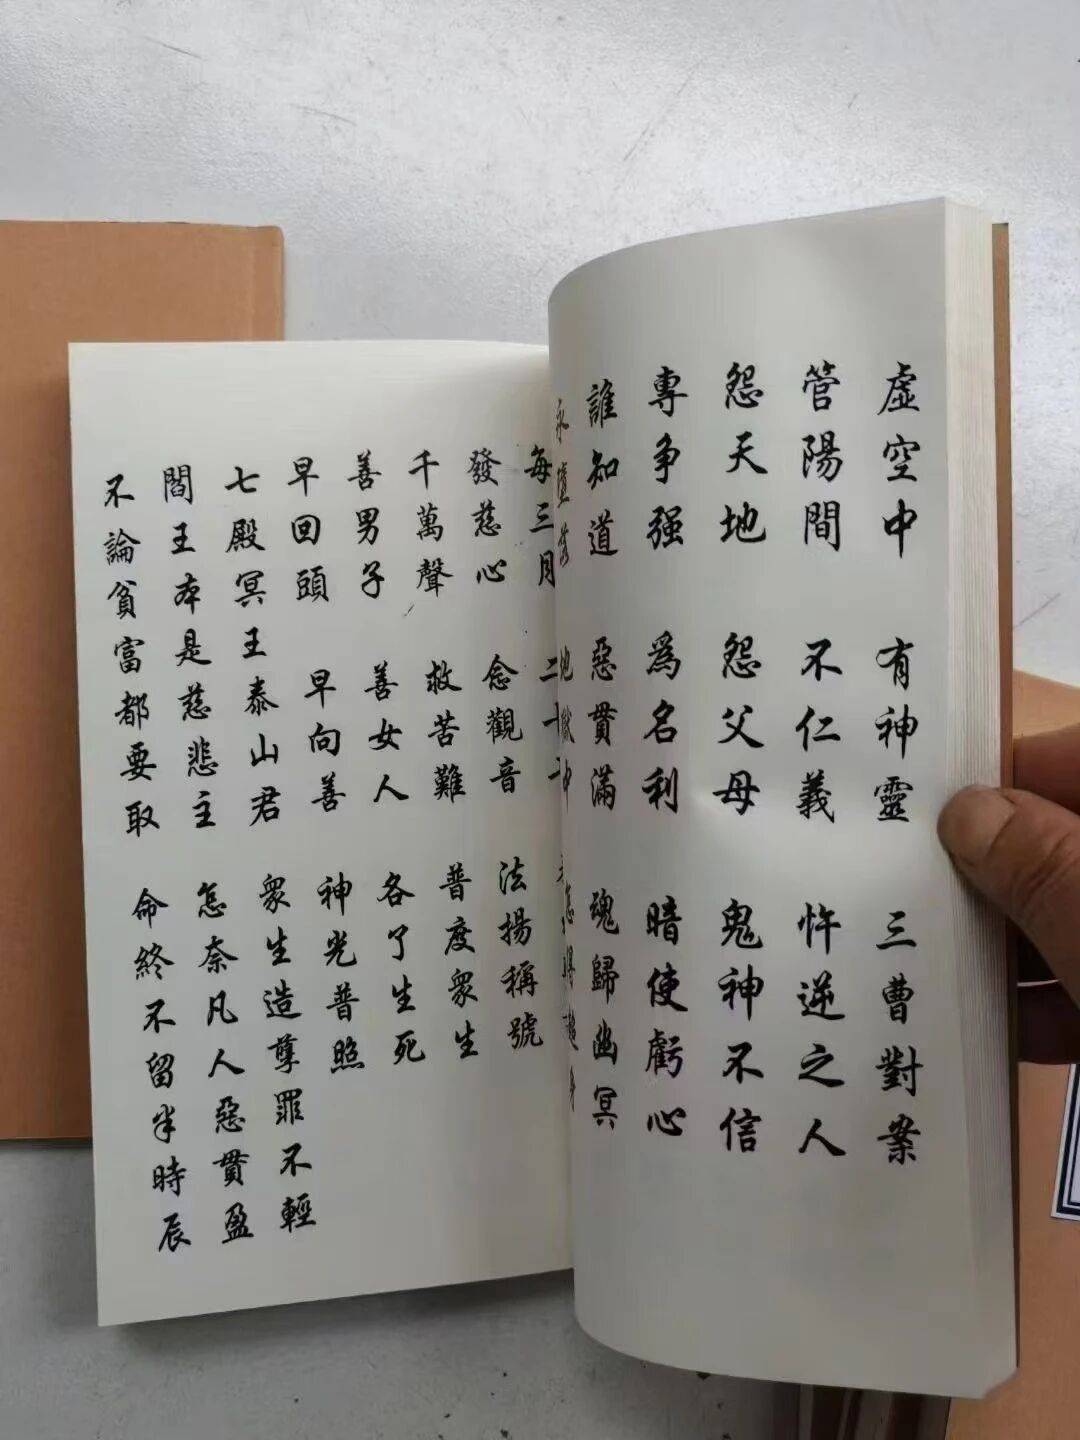 虛空中 有神靈 三曹對案
管陽間 不仁義 忤逆之人
怨天地 怨父母 鬼神不信
專争强 爲名利 暗使虧心
誰知道 惡貫滿 魂歸幽冥
永墮落 地獄中 怎得超身
每三月 二十
發慈心 念觀音 法揚稱號
千萬聲 救苦難 普度衆生
善男子 善女人 各了生死
早回頭 早向善 神光普照
七殿冥王泰山君 衆生造孽罪不輕
閻王本是慈悲主 怎奈凡人惡貫盈
不論貧富都要取 命終不留半時辰